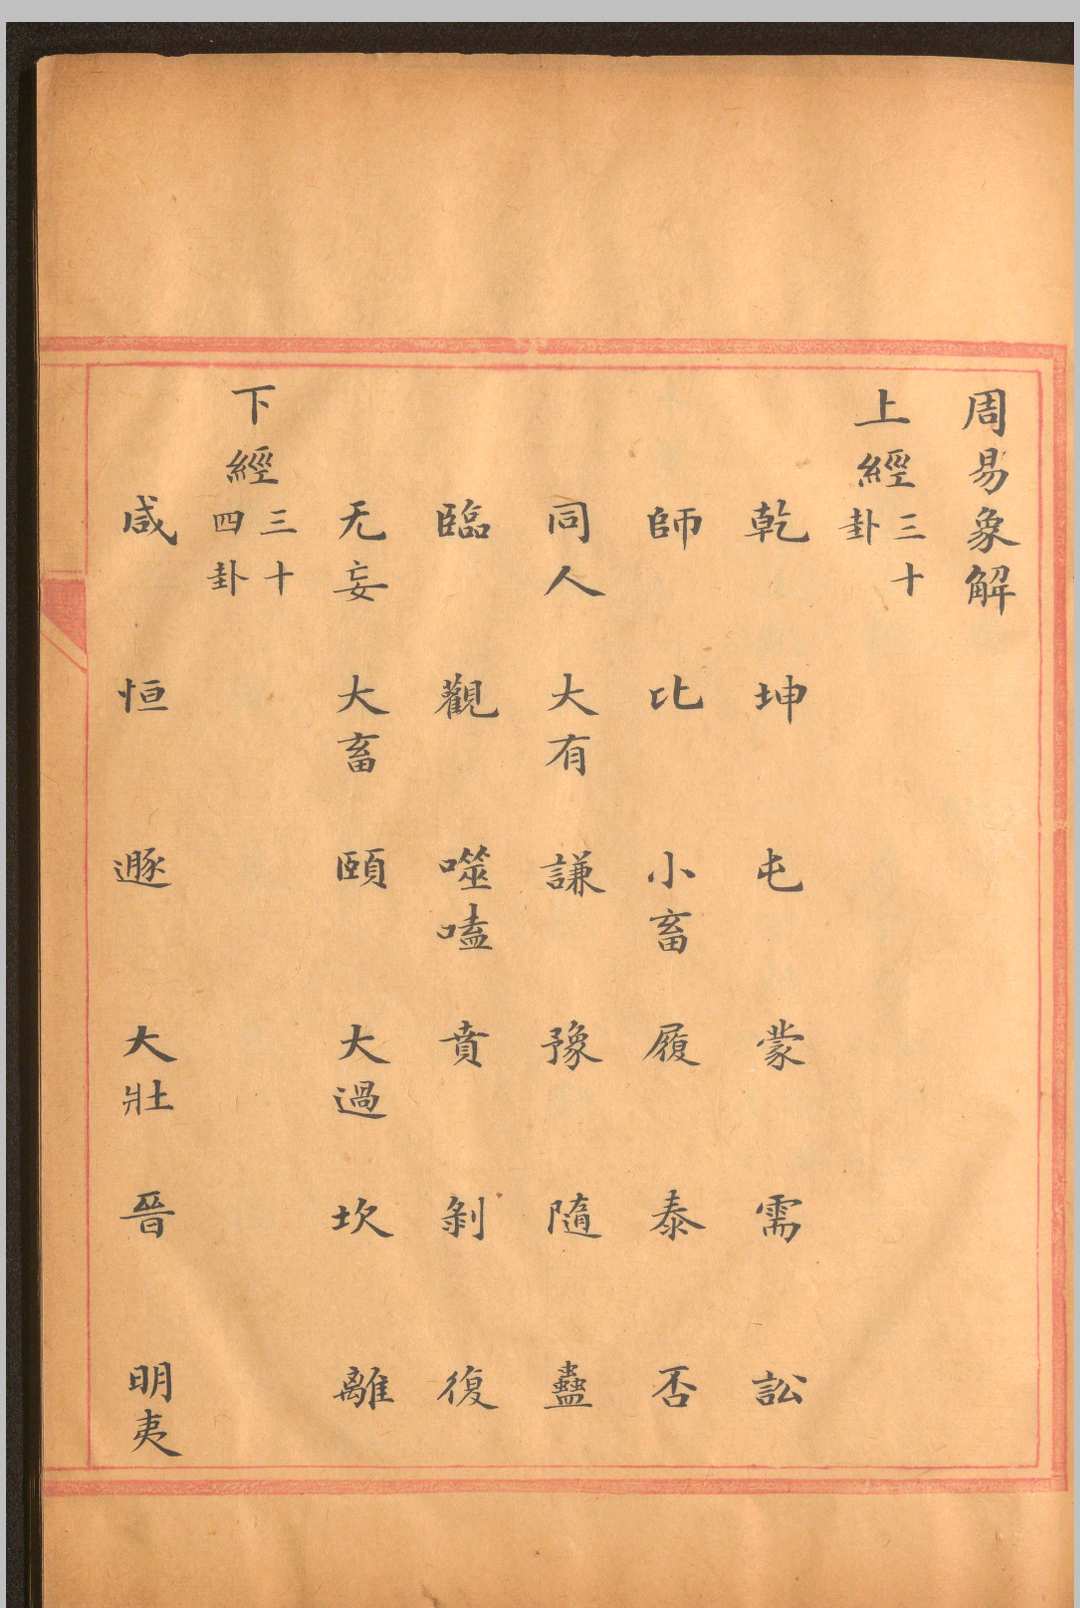 周易象解
上經三十卦
乾 坤 屯 蒙 需 訟
師 比 小畜 履 泰 否
同人 大有 謙 豫 隨 蠱
臨 觀 噬嗑 賁 剝 復
无妄 大畜 頤 大過 坎 離
下經三十四卦
咸 恒 遯 大壯 晉 明夷